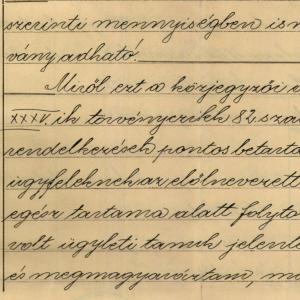 szerinti mennyiségben is m
vány adható.
Miről ezt a közjegyzői o
XXXV. ik törvényczikk 82. sza
rendelkezések pontos betarta
ügyfeleknek az előlnevezett
egész tartama alatt folyto
volt ügyleti tanuk jelenlé
és megmagyaráztam, m